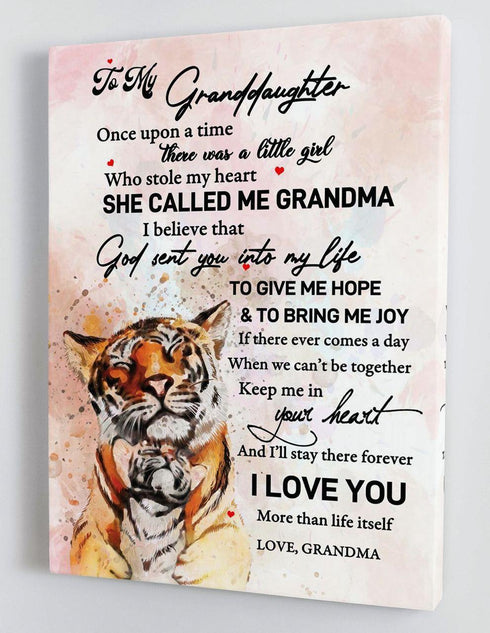 To My Granddaughter
Once upon a time
there was a little girl
Who stole my heart
SHE CALLED ME GRANDMA
I believe that
God sent you into my life
TO GIVE ME HOPE
& TO BRING ME JOY
If there ever comes a day
When we can't be together
Keep me in
your heart
And I'll stay there forever
I LOVE YOU
More than life itself
LOVE, GRANDMA